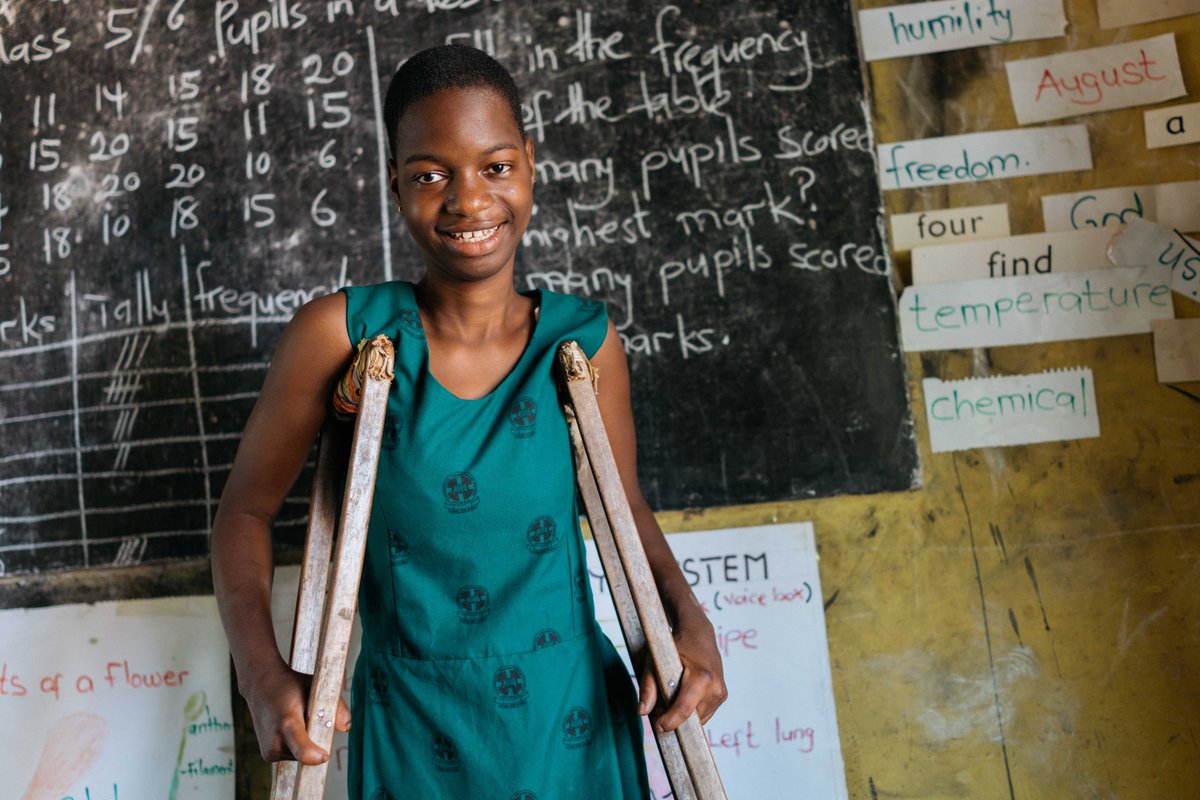 5/6 Pupils in a
11 14 15 18 20
15 20 15 11 15
18 20 20 10 6
18 10 18 15 6
Tally frequency
in the frequency
of the table
many pupils scored
highest mark?
many pupils scored
marks.
humility
August
a
freedom.
four
God
find
us.
temperature
chemical
STEM
(voice box)
Left lung
of a flower
-Filament